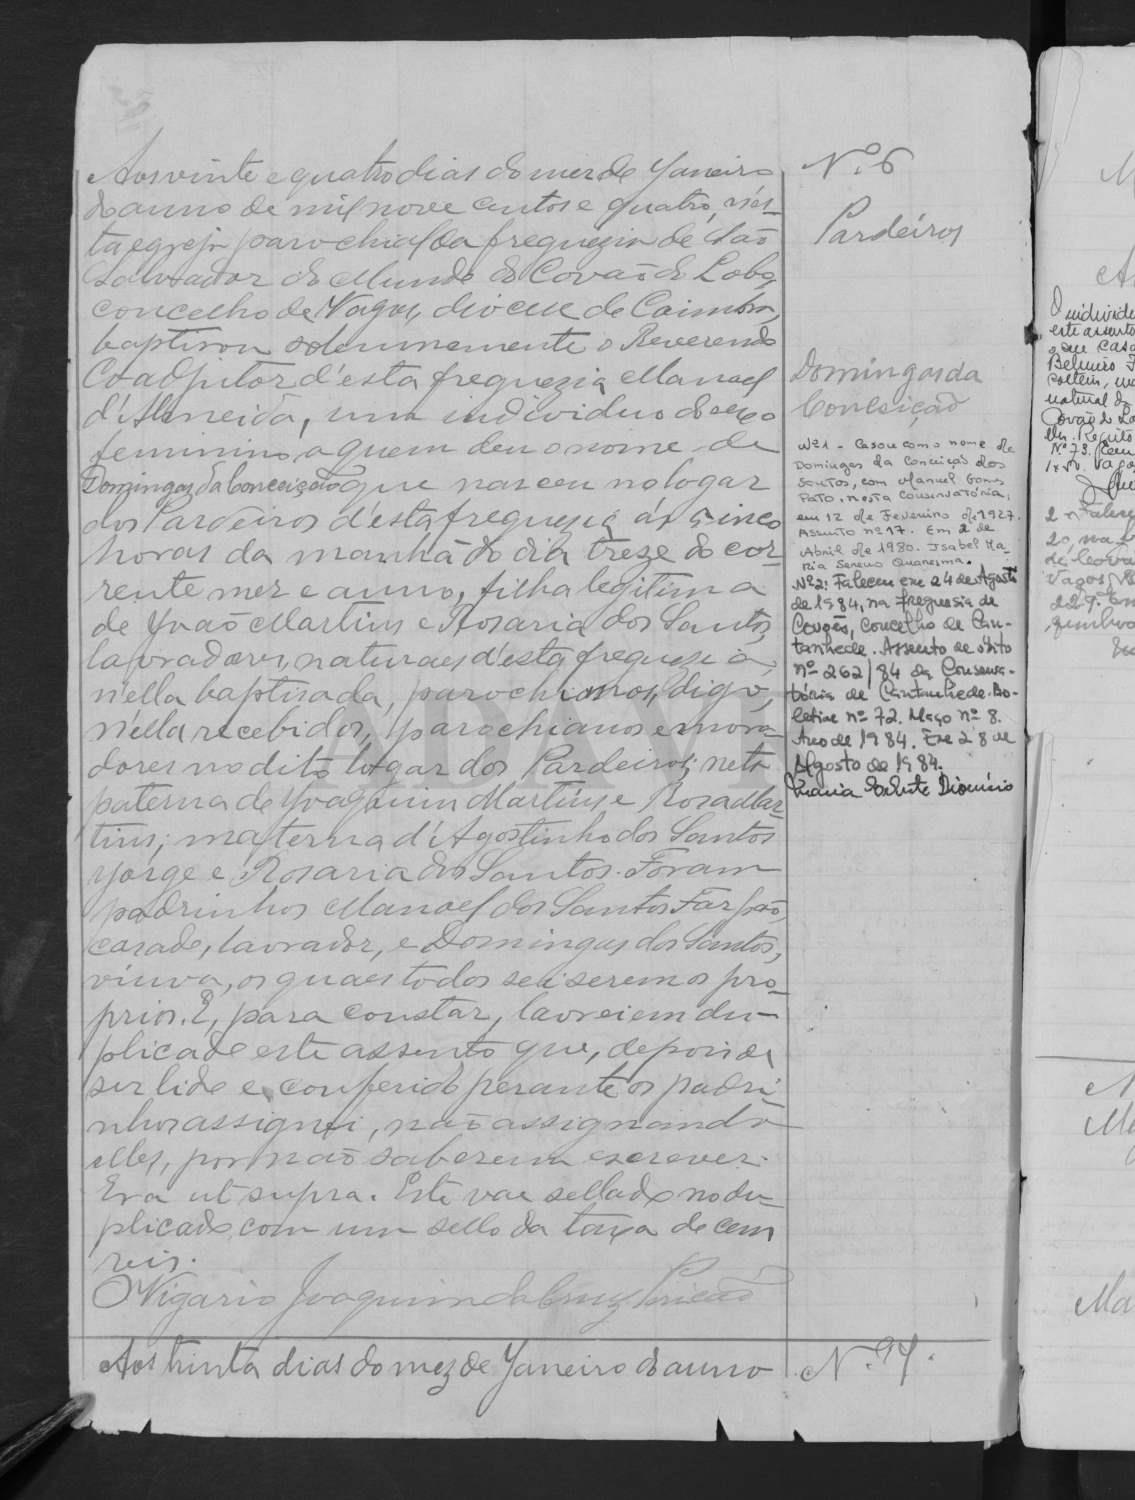 Aos vinte e quatro dias do mez de Janeiro
do anno de mil nove centos e quatro, n'es-
ta egreja parochial da freguezia de São
Salvador do Mundo do Covão do Lobo,
concelho de Vagos, diocese de Coimbra,
baptisou solemnemente o Reverendo
Coadjutor d'esta freguezia Manoel
d'Almeida, um individuo do sexo
feminino a quem deu o nome de
Domingas da Conceição que nasceu no logar
dos Pardeiros d'esta freguezia ás cinco
horas da manhã do dia treze do cor-
rente mez e anno, filha legitima
de João Martins e Rosaria dos Santos,
lavradores, naturaes d'esta freguezia,
n'ella baptisada, parochianos, digo,
n'ella recebidos, parochianos e mora-
dores no dito logar dos Pardeiros; neta
paterna de Joaquim Martins e Rosa Mar-
tins; materna d'Agostinho dos Santos
Jorge e Rosaria dos Santos. Foram
padrinhos Manoel dos Santos
casado, lavrador, e Domingas dos Santos,
viuva, os quaes todos sei serem os pro-
prios. E, para constar, lavrei em du-
plicado este assento que, depois de
ser lido e conferido perante os padri-
nhos assignei, não assignando
elles, por não saberem escrever.
Era ut supra. Este vae sellado no du-
plicado com um sello da taxa de cem
reis.
O Vigario Joaquim da Cruz
Aos trinta dias do mez de Janeiro do anno
Nº. 6
Pardeiros
Domingas da
Conceição
Nº1 - Casou com o nome de
Domingas da Conceição dos
Santos, com Manuel Gomes
Pato, nesta Conservatória,
em 12 de Fevereiro de 1927.
Assento nº 17. Em 2 de
Abril de 1980. Isabel Ma-
ria Sereno Quaresma.
Nº2: Faleceu em 24 de Agosto
de 1984, na freguesia de
Covões, Concelho de Can-
tanhede. Assento de óbito
nº 262/84 da Conserva-
tória de Cantanhede. Bo-
letim nº 72. Maço nº 8.
Ano de 1984. Em 28 de
Agosto de 1984.
Maria Dionísio
N.
ADAVR
O individu
este assento
Covão do Lo
Nº 73.
Vagos